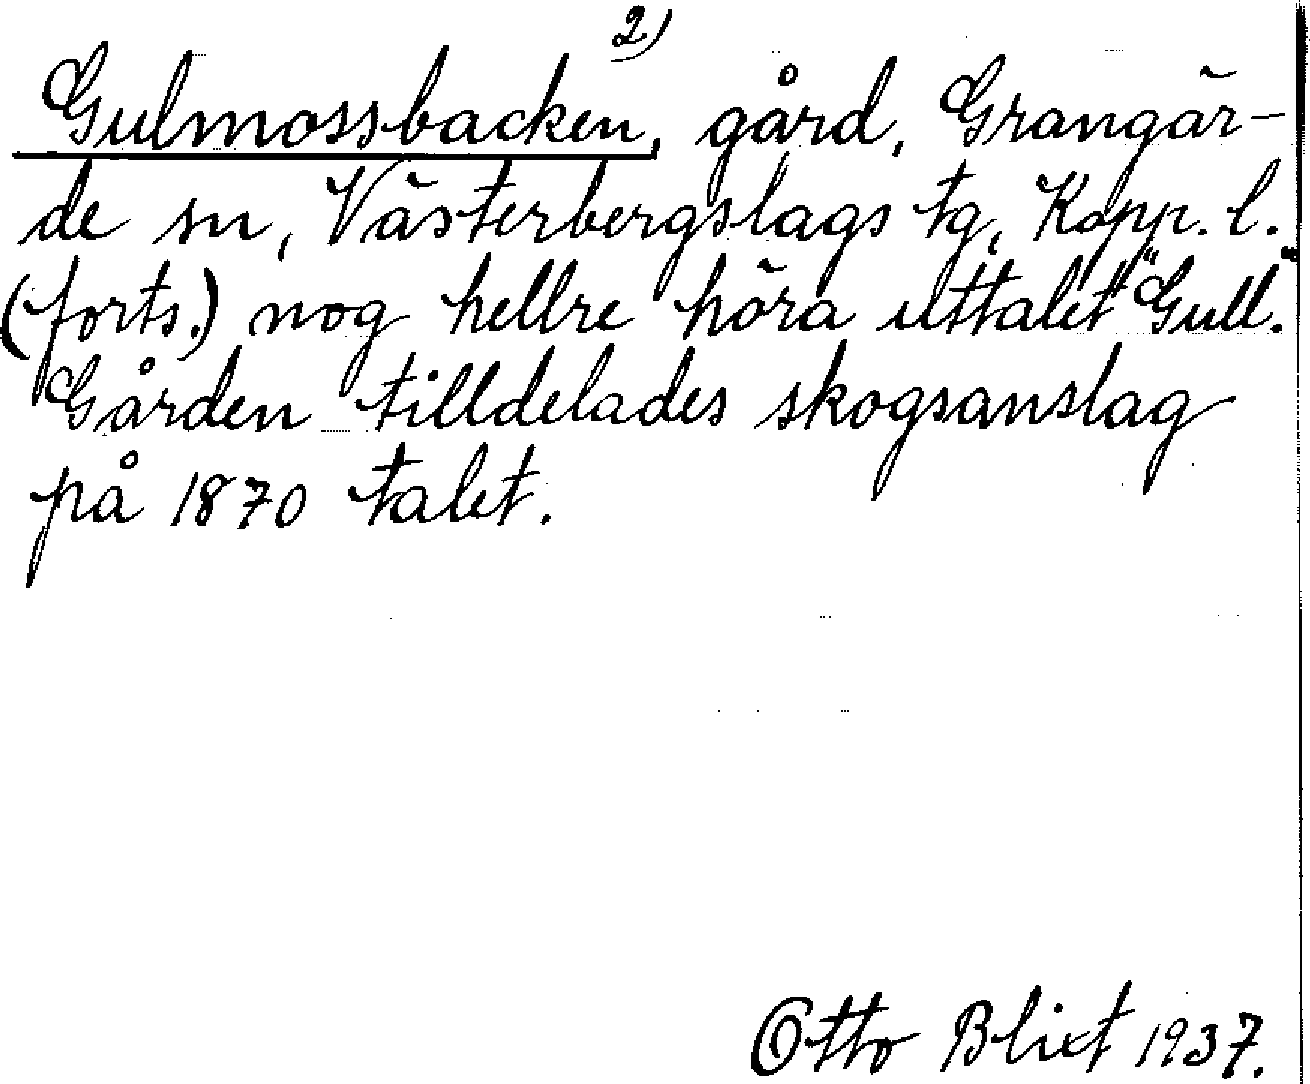 2)
Gulmossbacken, gård, Grangär-
de sn, Västerbergslags tg, Kopp. l.
(forts.) nog hellre höra uttalet "Gull."
Gården tilldelades skogsanslag
på 1870 talet.
Otto Blixt 1937.